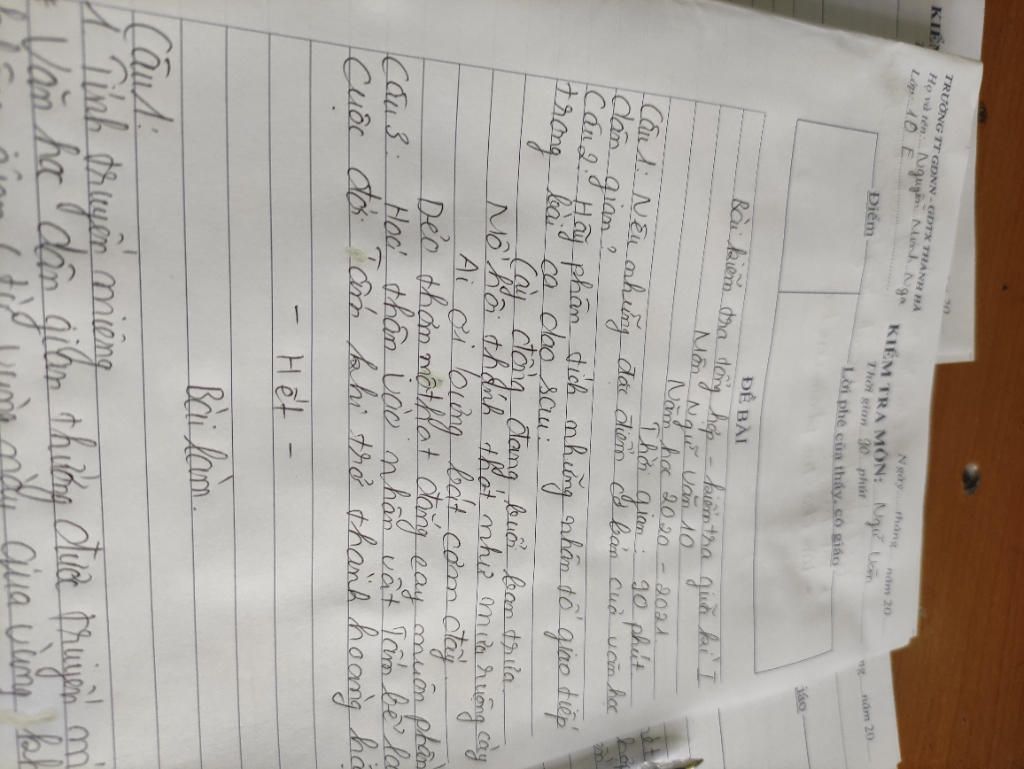 KIỂ
20
TRƯỜNG TT GDNN - GDTX THANH HÀ
Họ và tên: Nguyễn Minh Nga
Lớp: 10 E
Ngày tháng năm 20
KIỂM TRA MÔN: Ngữ Văn
Thời gian 90 phút
Điểm
Lời phê của thầy, cô giáo
ng năm 20
giáo
ĐỀ BÀI
Bài kiểm tra tổng hợp - kiểm tra giữa kì I
Môn Ngữ văn 10
Năm học 2020 - 2021
Thời gian: 90 phút
Câu 1: Nêu những đặc điểm cơ bản của văn học
dân gian?
Câu 2: Hãy phân tích những nhân tố giao tiếp
trong bài ca dao sau:
Cày đồng đang buổi ban trưa
Mồ hôi thánh thót như mưa ruộng cày
Ai ơi bưng bát cơm đầy
Dẻo thơm một hạt đắng cay muôn phần
Câu 3: Hoá thân vào nhân vật Tấm kể lại
Cuộc đời Tấm khi trở thành hoàng hậ
- Hết -
Bài làm.
Câu 1:
1 Tính truyền miệng
Văn học dân gian thường được truyền m